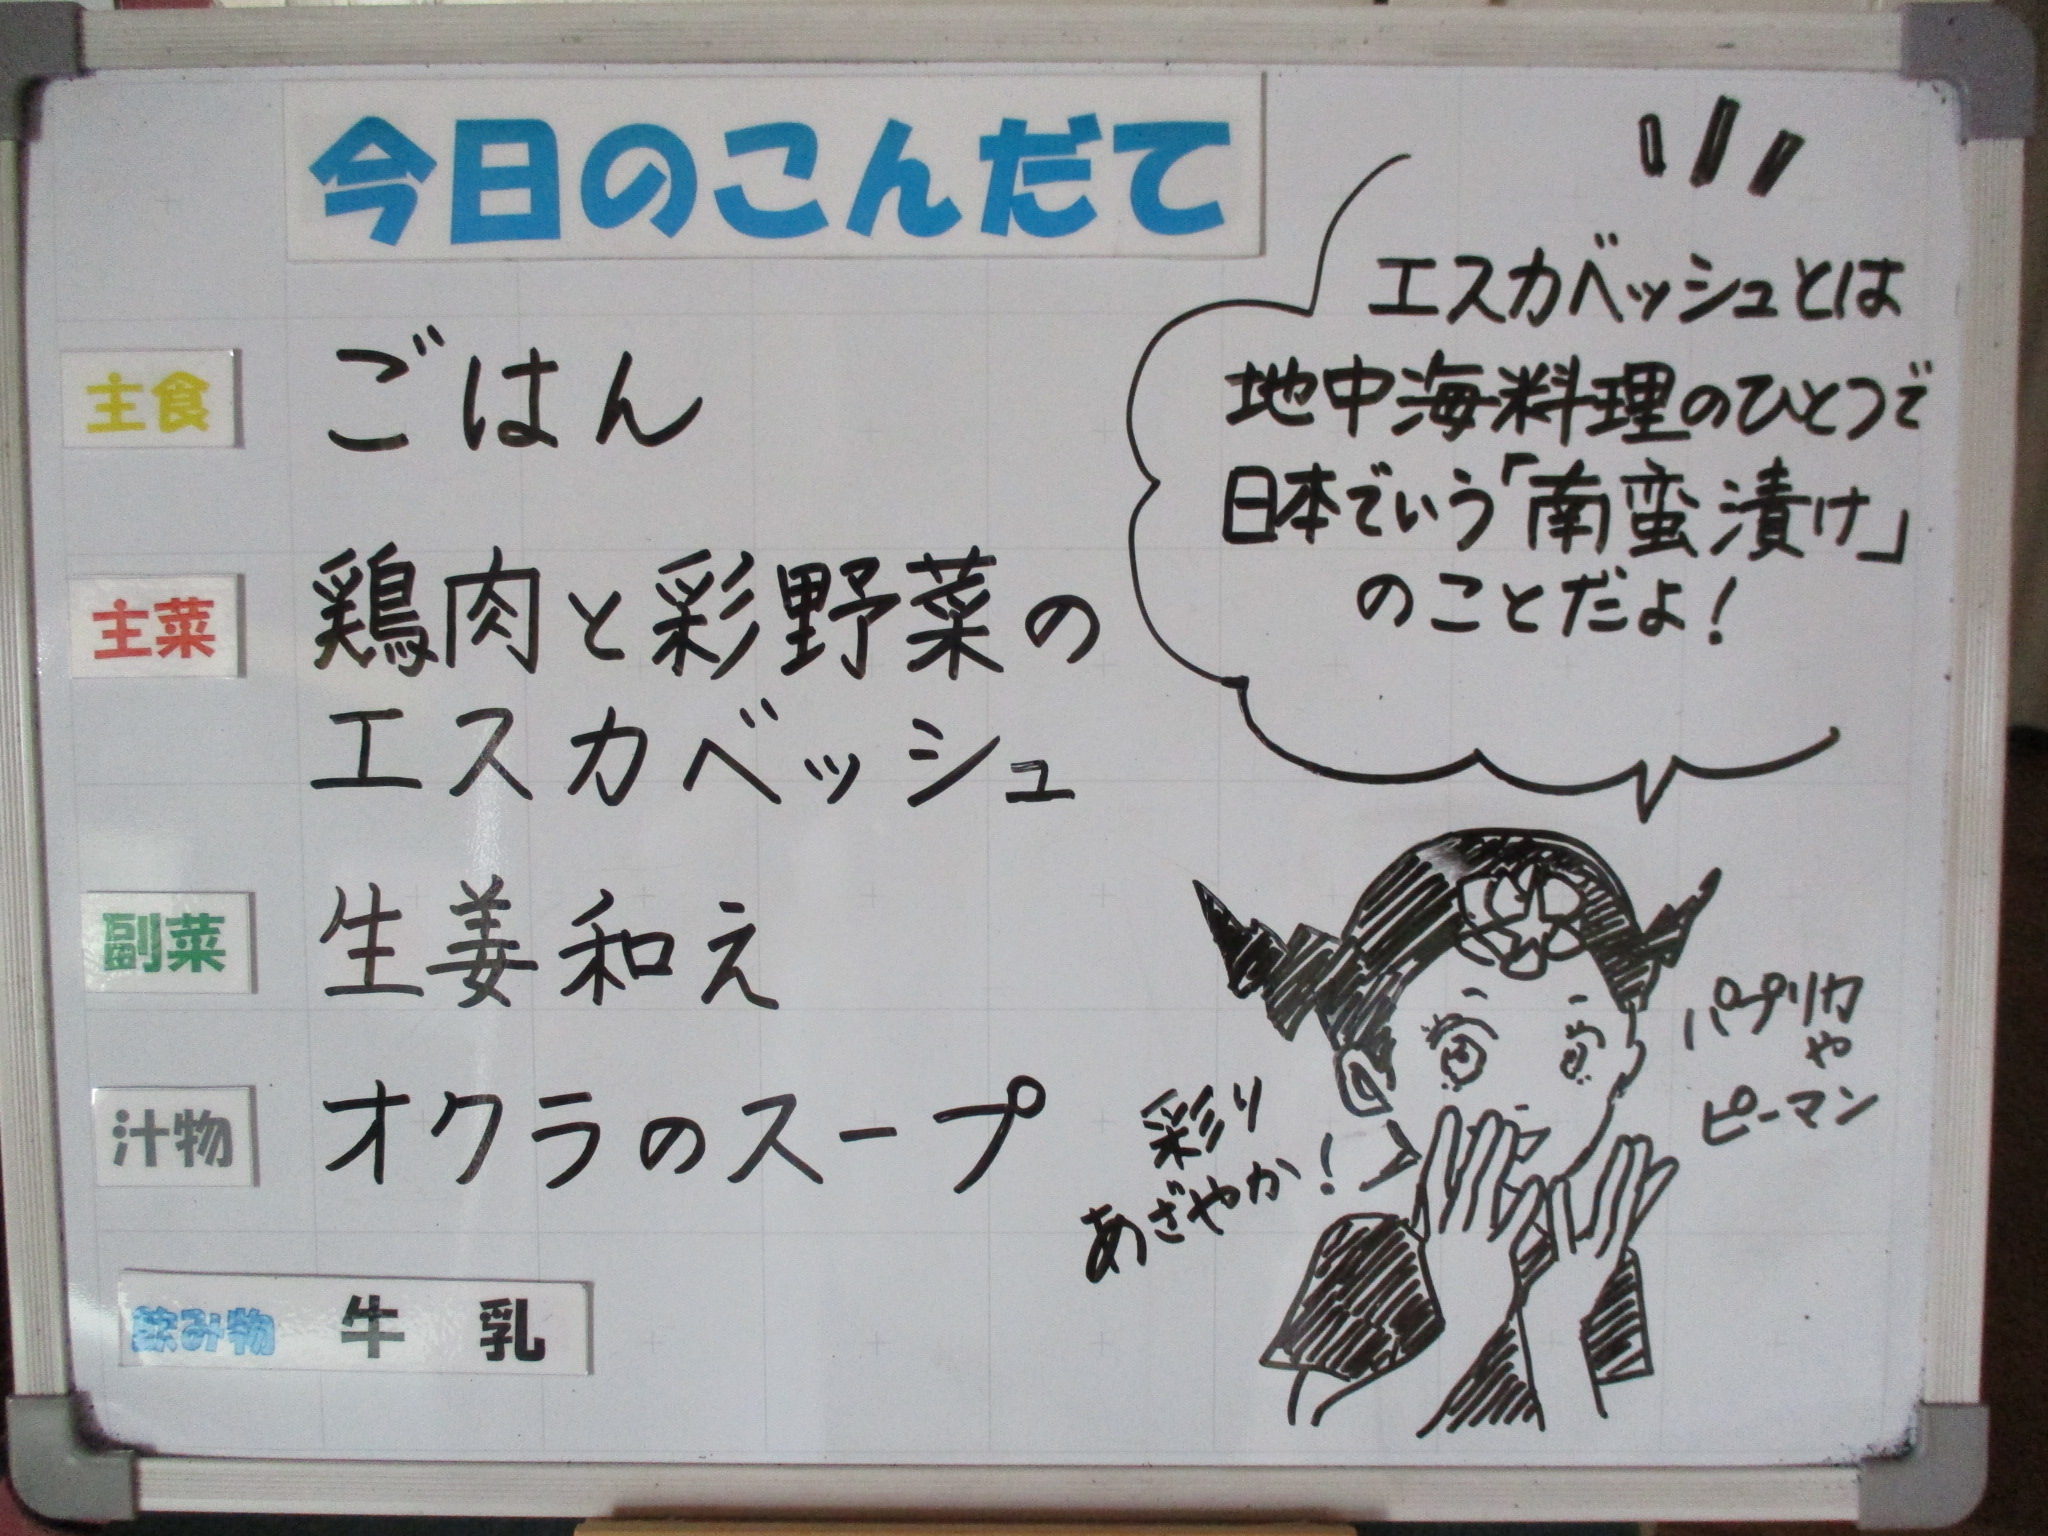 今日のこんだて
主食 ごはん
主菜 鶏肉と彩野菜の
エスカベッシュ
副菜 生姜和え
汁物 オクラのスープ
飲み物 牛乳
エスカベッシュとは
地中海料理のひとつで
日本でいう「南蛮漬け」
のことだよ!
パプリカ
や
ピーマン
彩り
あざやか!